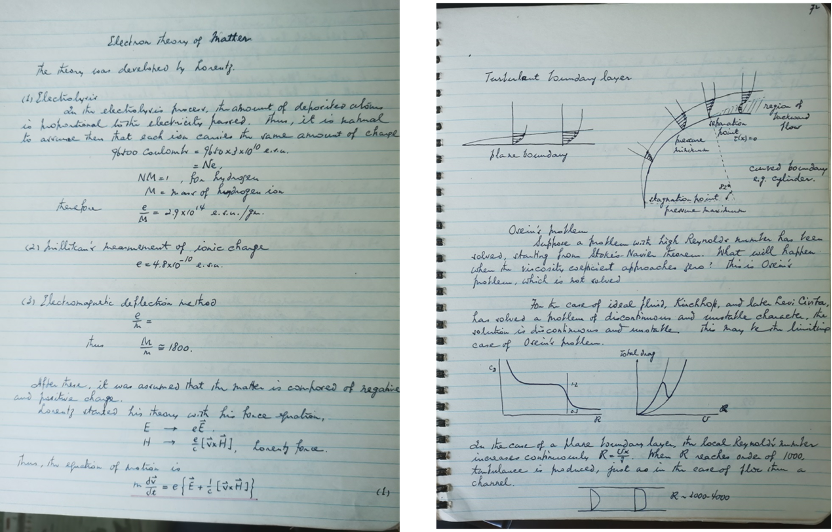 Electron theory of Matter
The theory was developed by Lorentz.
(1) Electrolysis
In the electrolysis process, the amount of deposited atoms
is proportional to the electricity passed. Thus, it is natural
to assume then that each ion carries the same amount of charge
96500 Coulombs = 9650 × 3×10¹⁰ e.s.u.
= Ne,
NM=1, for hydrogen
M = mass of hydrogen ion
therefore e/M = 2.9×10¹⁴ e.s.u./gr.
(2) Millikan's measurement of ionic charge
e = 4.8×10⁻¹⁰ e.s.u.
(3) Electromagnetic deflection method
e/m =
thus M/m ≅ 1800.
After these, it was assumed that the matter is composed of negative
and positive charge.
Lorentz started his theory with his force equation,
E → eE⃗.
H → e/c [v⃗×H⃗], Lorentz force.
Thus, the equation of motion is
m dv⃗/dt = e{E⃗ + 1/c [v⃗×H⃗]}
(1)
72
Turbulent boundary layer
plane boundary
separation
point
τ(x)=0
region of
backward
flow
pressure
minimum
curved boundary
e.g. cylinder.
82°
stagnation point
pressure maximum
Oseen's problem
Suppose a problem with high Reynolds number has been
solved, starting from Stokes Navier theorem. What will happen
when the viscosity coefficient approaches zero? This is Oseen's
problem, which is not solved
For the case of ideal fluid, Kirchhoff, and late Levi Civita,
has solved a problem of discontinuous and unstable character, the
solution is discontinuous and unstable. This may be the limiting
case of Oseen's problem.
Total drag
R
U
In the case of a plane boundary layer, the local Reynold's number
increases continuously R = Ux/ν. When R reaches order of 1000,
turbulance is produced, just as in the case of flow thru a
channel.
R ~ 1000-4000